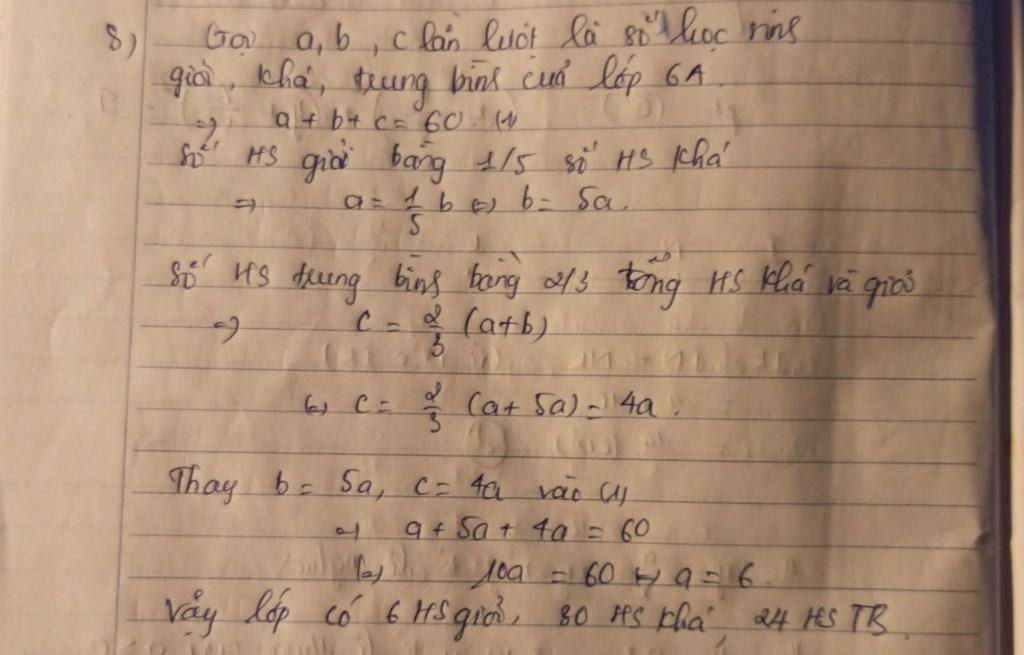 8) Gọi a, b, c lần lượt là số học sinh
giỏi, khá, trung bình của lớp 6A.
=> a + b + c = 60 (1)
Số HS giỏi bằng 1/5 số HS khá
=> a = 1/5 b <=> b = 5a.
Số HS trung bình bằng 2/3 tổng HS khá và giỏi
=> c = 2/3 (a+b)
<=> c = 2/3 (a + 5a) = 4a.
Thay b = 5a, c = 4a vào (1)
=> a + 5a + 4a = 60
<=> 10a = 60 <=> a = 6.
Vậy lớp có 6 HS giỏi, 30 HS khá, 24 HS TB.